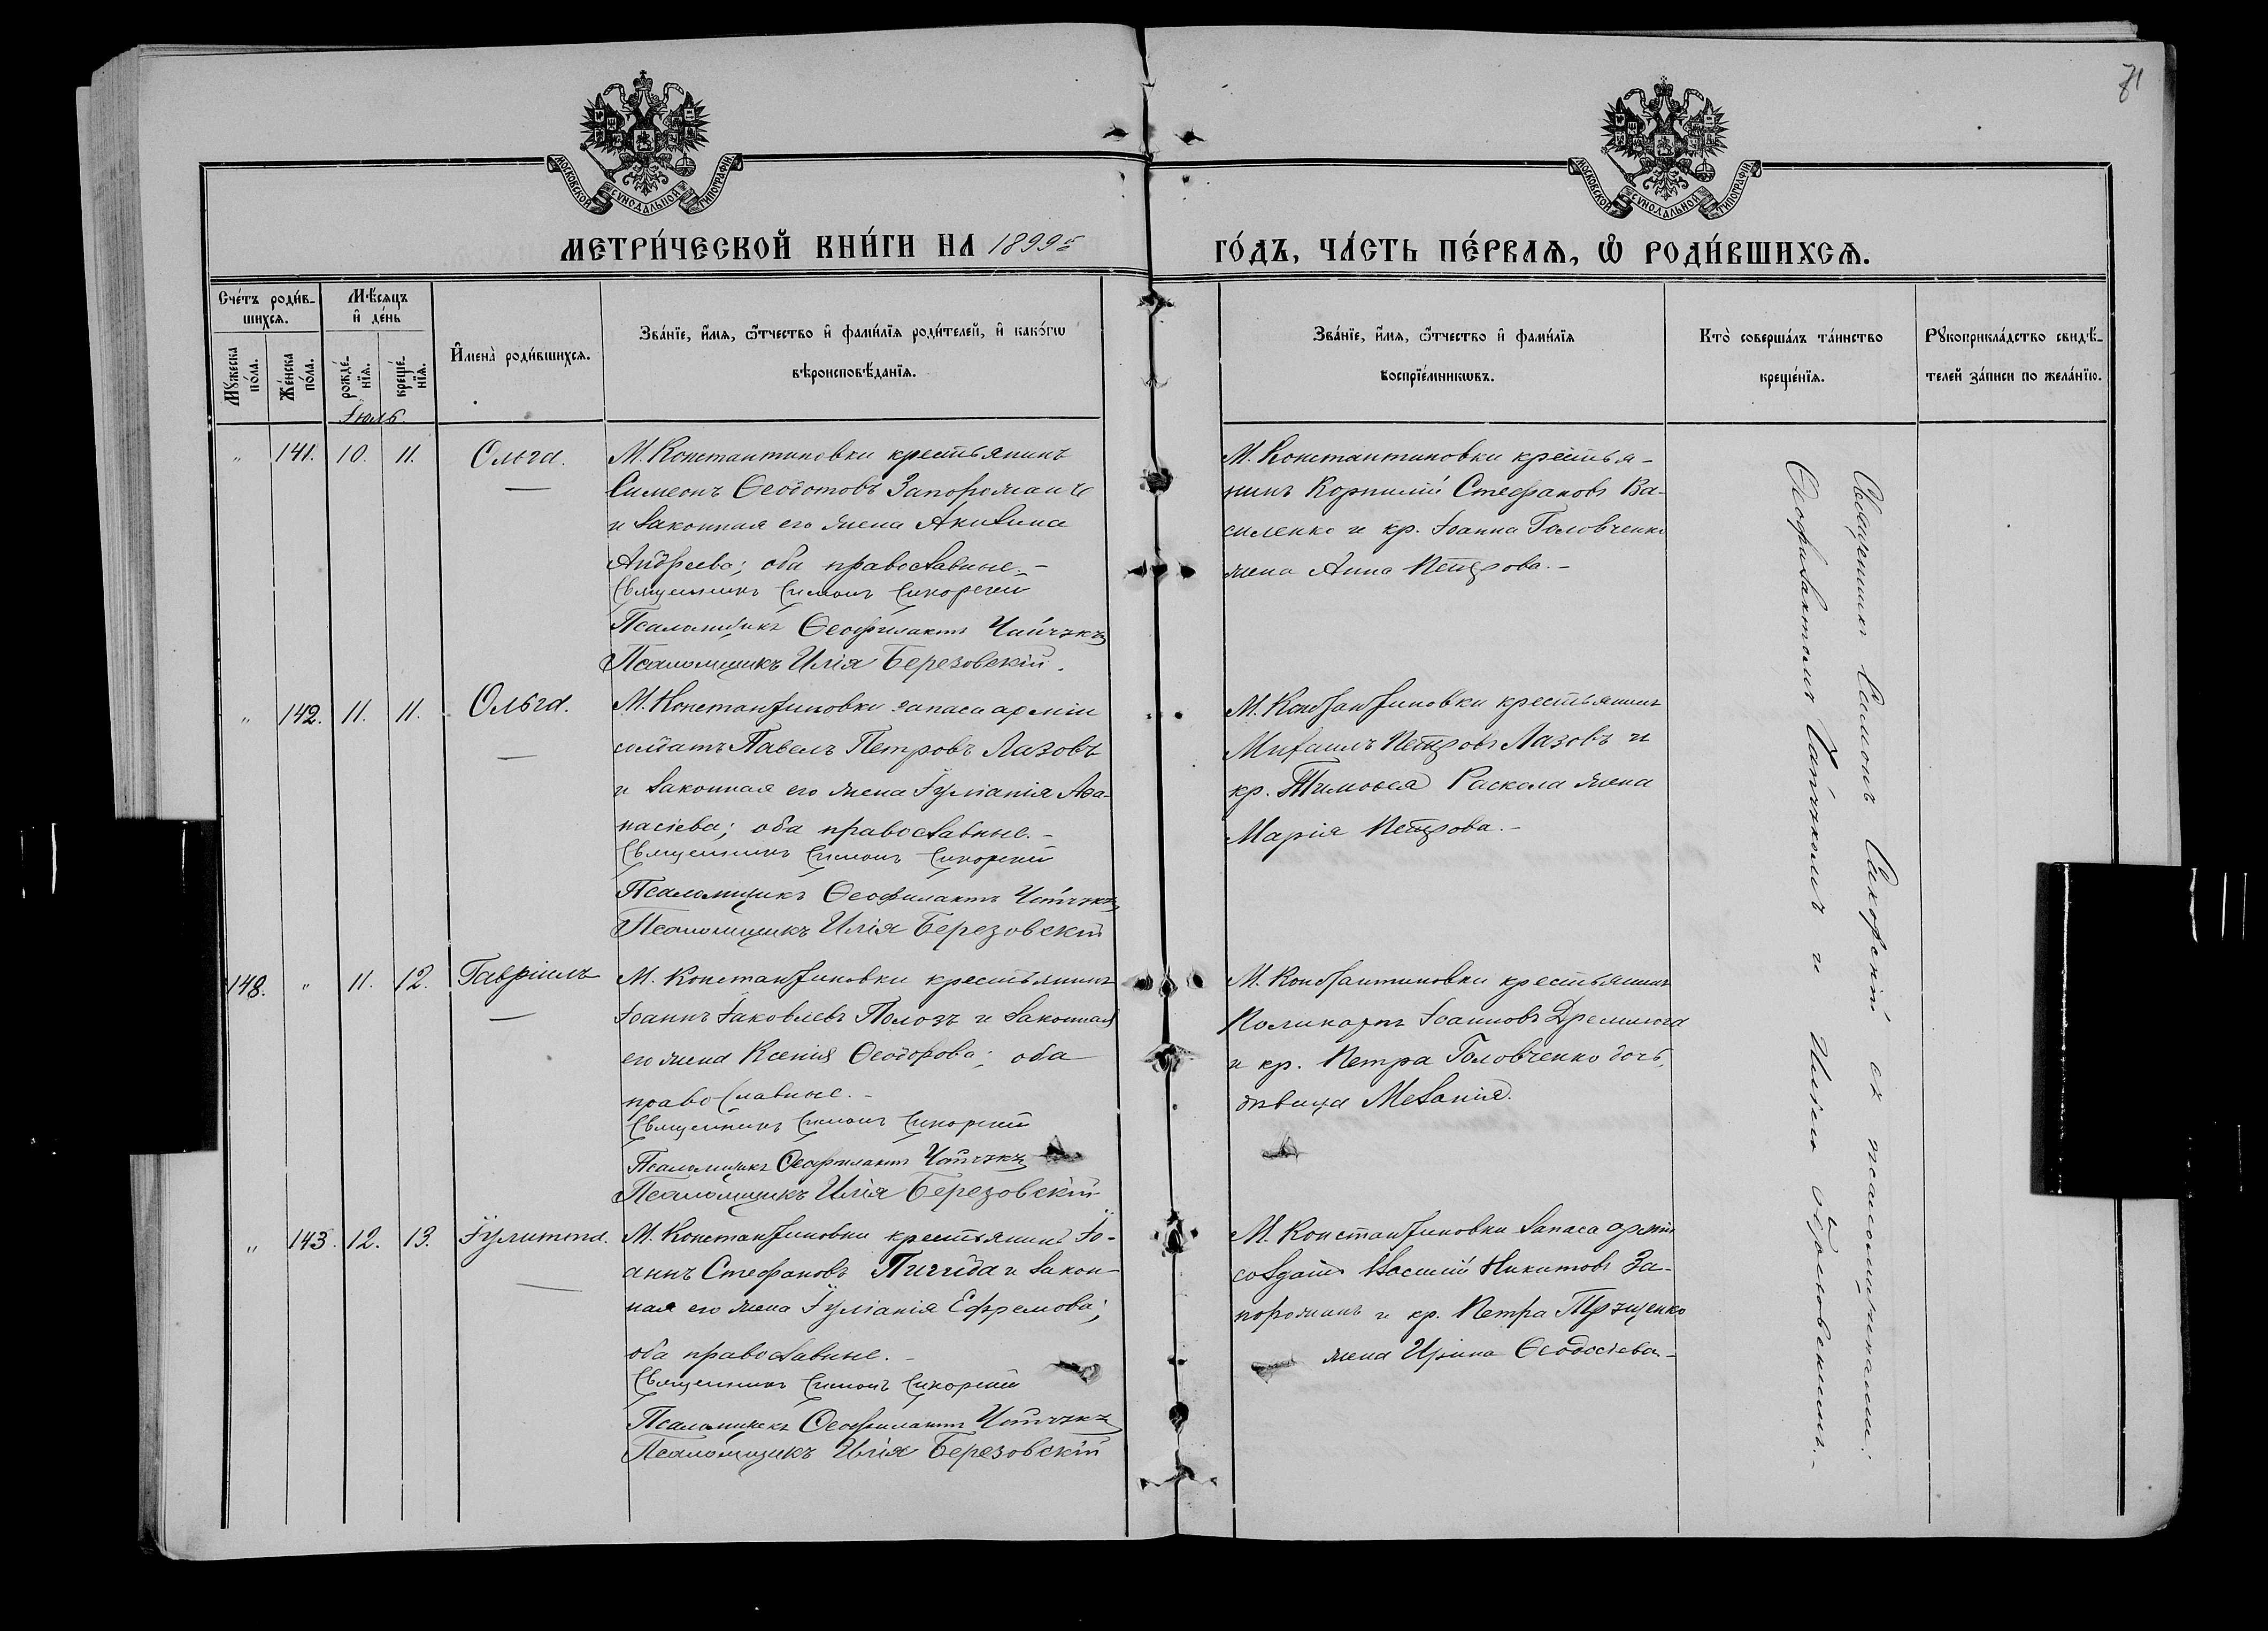 71
МОСКОВСКОЙ СѴНОДАЛЬНОЙ ТИПОГРАФІИ
МОСКОВСКОЙ СѴНОДАЛЬНОЙ ТИПОГРАФІИ
МЕТРИ́ЧЕСКОЙ КНИ́ГИ НА 1899й ГО́ДЪ, ЧА́СТЬ ПЕ́РВАѦ, Ѡ҆ РОДИ́ВШИХСѦ.
Сче́тъ роди́в-
шихсѧ.
Мꙋ́жеска по́ла.
Же́нска по́ла.
Мѣ́сѧцъ и҆ де́нь
рожде́-
нїѧ.
креще́-
нїѧ.
И҆мена̀ роди́вшихсѧ.
Зва́нїе, и҆́мѧ, ѻ҆́тчество и҆ фамилїѧ роди́телей, и҆ како́гѡ
вѣроисповѣ́данїѧ.
Зва́нїе, и҆́мѧ, ѻ҆́тчество и҆ фами́лїѧ
воспрїе́мникѡвъ.
Кто̀ соверша́лъ та́инство
креще́нїѧ.
Рꙋкоприкла́дство свидѣ́-
телей за́писи по жела́нїю.
Іюль.
" 141. 10. 11. Ольга.
М. Константиновки крестьянинъ
Симеонъ Ѳеодотовъ Запорожанъ
и законная его жена Акилина
Андреева; оба православные.-
Священникъ Симонъ Сикорскій
Псаломщикъ Ѳеофилактъ Чайчукъ
Псаломщикъ Илія Березовскій.
М. Константиновки крестья-
нинъ Корнилій Стефановъ Ва-
силенко и кр. Іоанна Головченко
жена Анна Петрова.-
" 142. 11. 11. Ольга.
М. Константиновки запаса арміи
солдатъ Павелъ Петровъ Лазовъ
и законная его жена Іуліанія Аѳа-
насіева; оба православные.-
Священникъ Симонъ Сикорскій
Псаломщикъ Ѳеофилактъ Чайчукъ
Псаломщикъ Илія Березовскій
М. Константиновки крестьянинъ
Михаилъ Петровъ Лазовъ и
кр. Тимоѳея Раскола жена
Марія Петрова.-
148. " 11. 12. Гавріилъ
М. Константиновки крестьянинъ
Іоаннъ Іаковлевъ Полозъ и законная
его жена Ксенія Ѳеодорова; оба
православные.-
Священникъ Симонъ Сикорскій
Псаломщикъ Ѳеофилактъ Чайчукъ
Псаломщикъ Илія Березовскій
М. Константиновки крестьянинъ
Поликарпъ Іоанновъ Дремлюга
и кр. Петра Головченко дочь,
дѣвица Меланія.
" 143. 12. 13. Іулитта.
М. Константиновки крестьянинъ Іо-
аннъ Стефановъ и закон-
ная его жена Іуліанія Ефремова;
оба православные.-
Священникъ Симонъ Сикорскій
Псаломщикъ Ѳеофилактъ Чайчукъ
Псаломщикъ Илія Березовскій
М. Константиновки запаса арміи
солдатъ Василій Никитовъ За-
порожанъ и кр. Петра
жена Ирина Ѳеодосіева-
Священникъ Симонъ Сикорскій съ псаломщиками:
Ѳеофилактомъ Чайчукомъ и Иліею Березовскимъ.-